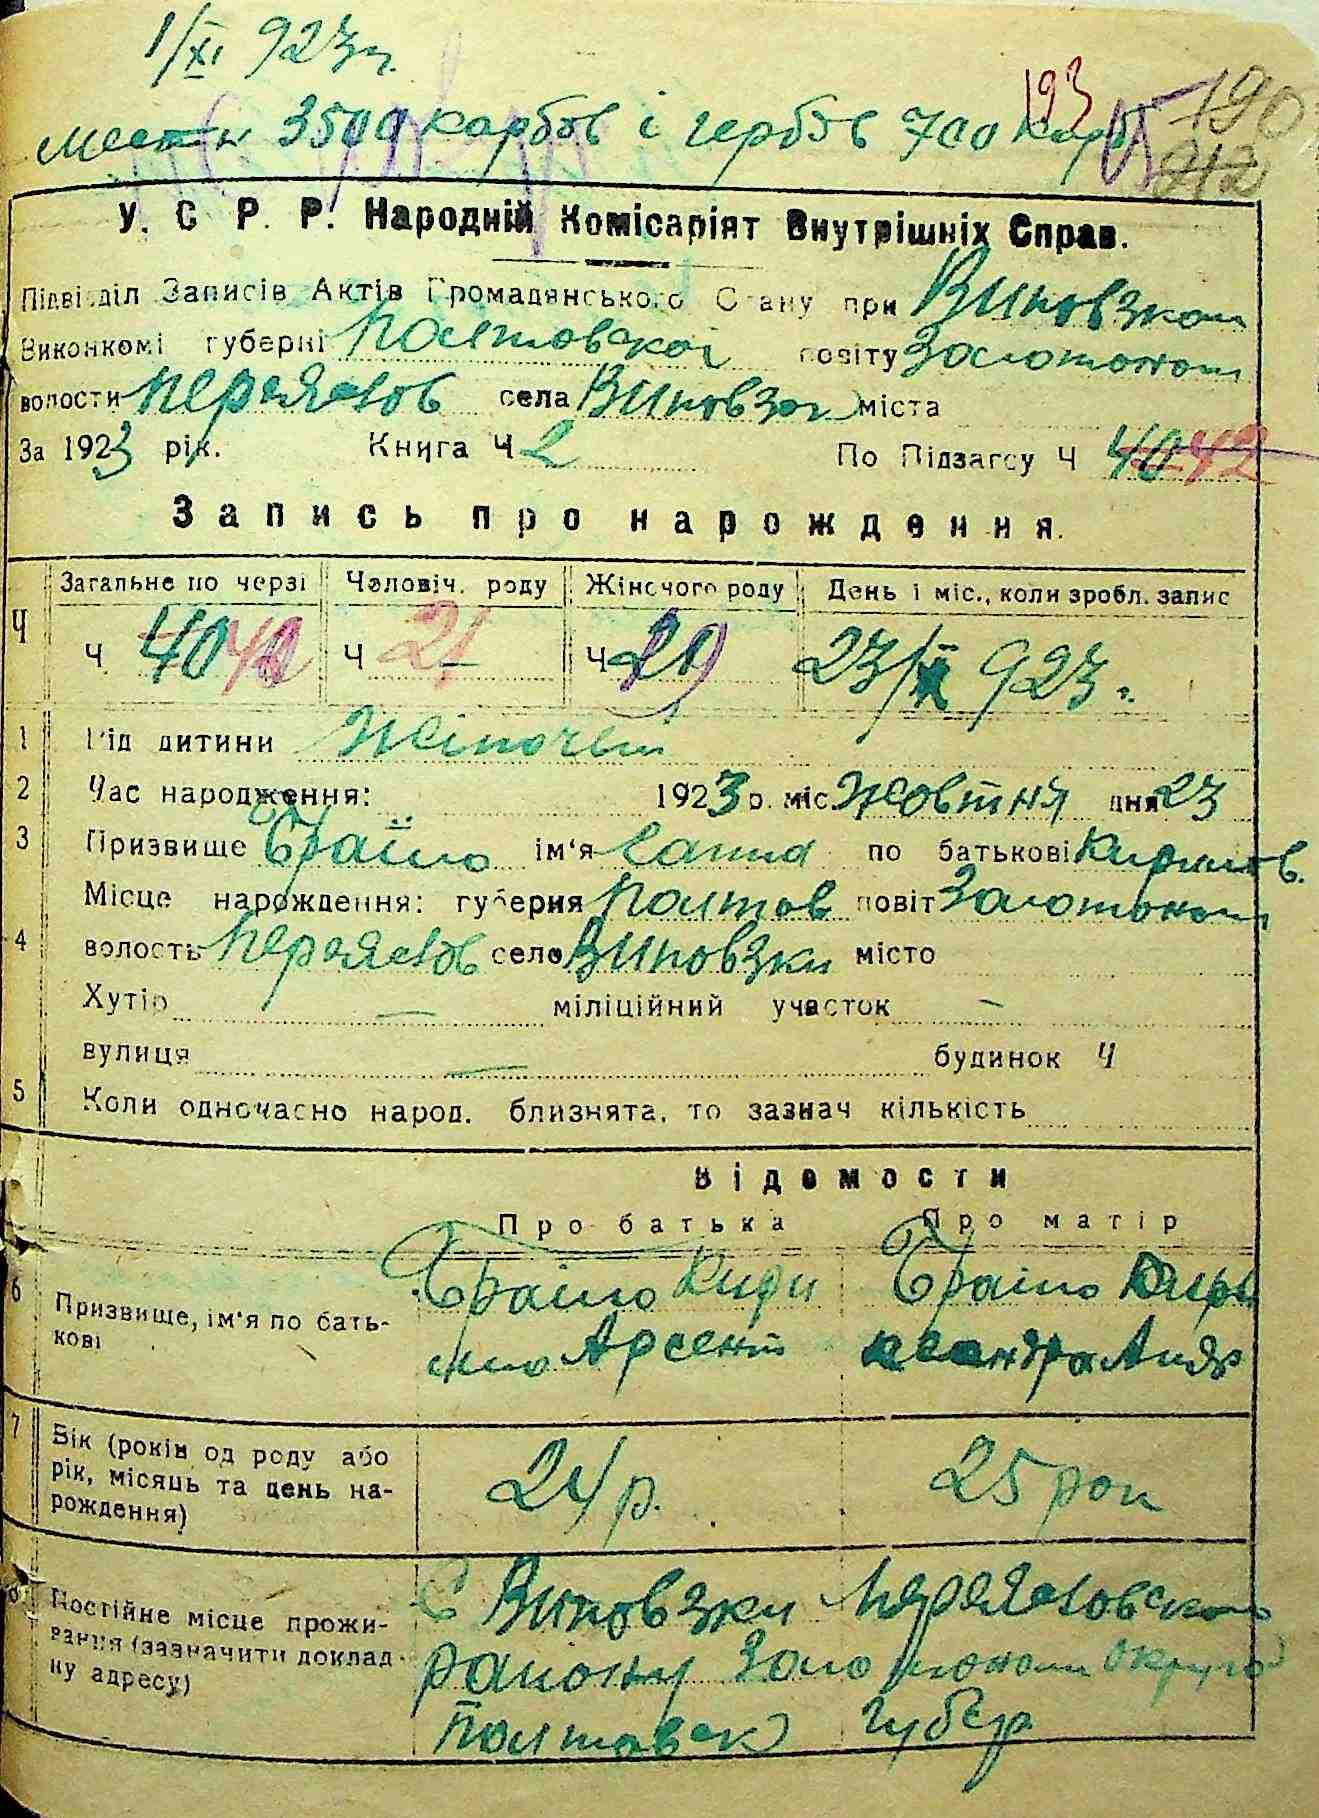 1/XI 923 г.
местн 3500 карбов і гербов 700 карб
193
190
212
У. С. Р. Р. Народній Комісаріят Внутрішніх Справ.
Підвідділ Записів Актів Громадянського Стану при
Виконкомі губерні Полтовской повіту Золотонош
волости Переяслов села міста
За 1923 рік. Книга Ч 2 По Підзагсу Ч 40 42
Запись про нарождення.
Загальне по черзі Человіч. роду Жіночого роду День і міс., коли зробл. запис
Ч Ч 40 Ч 21 Ч 923 г.
1 Рід дитини Жіночей
2 Час народження: 1923 р. міс. Жовтня дня 23
3 Призвище ім'я по батькові Кирилов.
Місце нарождення: губерня Полтов повіт Золотонош
4 волость Переяслов село місто
Хутір — міліційний участок —
вулиця — будинок Ч
5 Коли одночасно народ. близнята, то зазнач кількість
Відомости
Про батька Про матір
6 Призвище, ім'я по бать- Кири
кові ло Арсент
7 Вік (років од роду або 24 р. 25 рок
рік, місяць та день на-
рождення)
8 Постійне місце прожи- С Переясловского
вання (зазначити доклад- району Золотонош округа
ну адресу) Полтавск губер